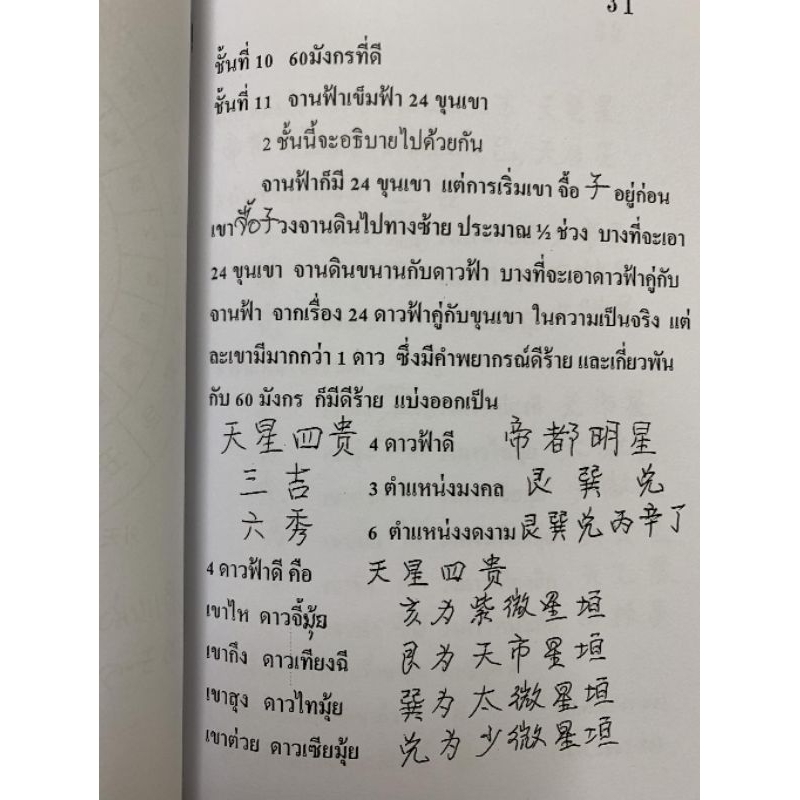 31
ชั้นที่ 10 60มังกรที่ดี
ชั้นที่ 11 จานฟ้าเข็มฟ้า 24 ขุนเขา
2 ชั้นนี้จะอธิบายไปด้วยกัน
จานฟ้าก็มี 24 ขุนเขา แต่การเริ่มเขา จื้อ 子 อยู่ก่อน
เขาจื้อ子วงจานดินไปทางซ้าย ประมาณ ½ ช่วง บางที่จะเอา
24 ขุนเขา จานดินขนานกับดาวฟ้า บางที่จะเอาดาวฟ้าคู่กับ
จานฟ้า จากเรื่อง 24 ดาวฟ้าคู่กับขุนเขา ในความเป็นจริง แต่
ละเขามีมากกว่า 1 ดาว ซึ่งมีคำพยากรณ์ดีร้าย และเกี่ยวพัน
กับ 60 มังกร ก็มีดีร้าย แบ่งออกเป็น
天星四贵 4 ดาวฟ้าดี 帝都明星
三吉 3 ตำแหน่งมงคล 艮巽兑
六秀 6 ตำแหน่งงดงาม 艮巽兑丙辛丁
4 ดาวฟ้าดี คือ 天星四贵
เขาไห ดาวจี้มุ้ย 亥为紫微星垣
เขากึง ดาวเทียงฉี 艮为天市星垣
เขาสุง ดาวไทมุ้ย 巽为太微星垣
เขาต่วย ดาวเซียมุ้ย 兑为少微星垣